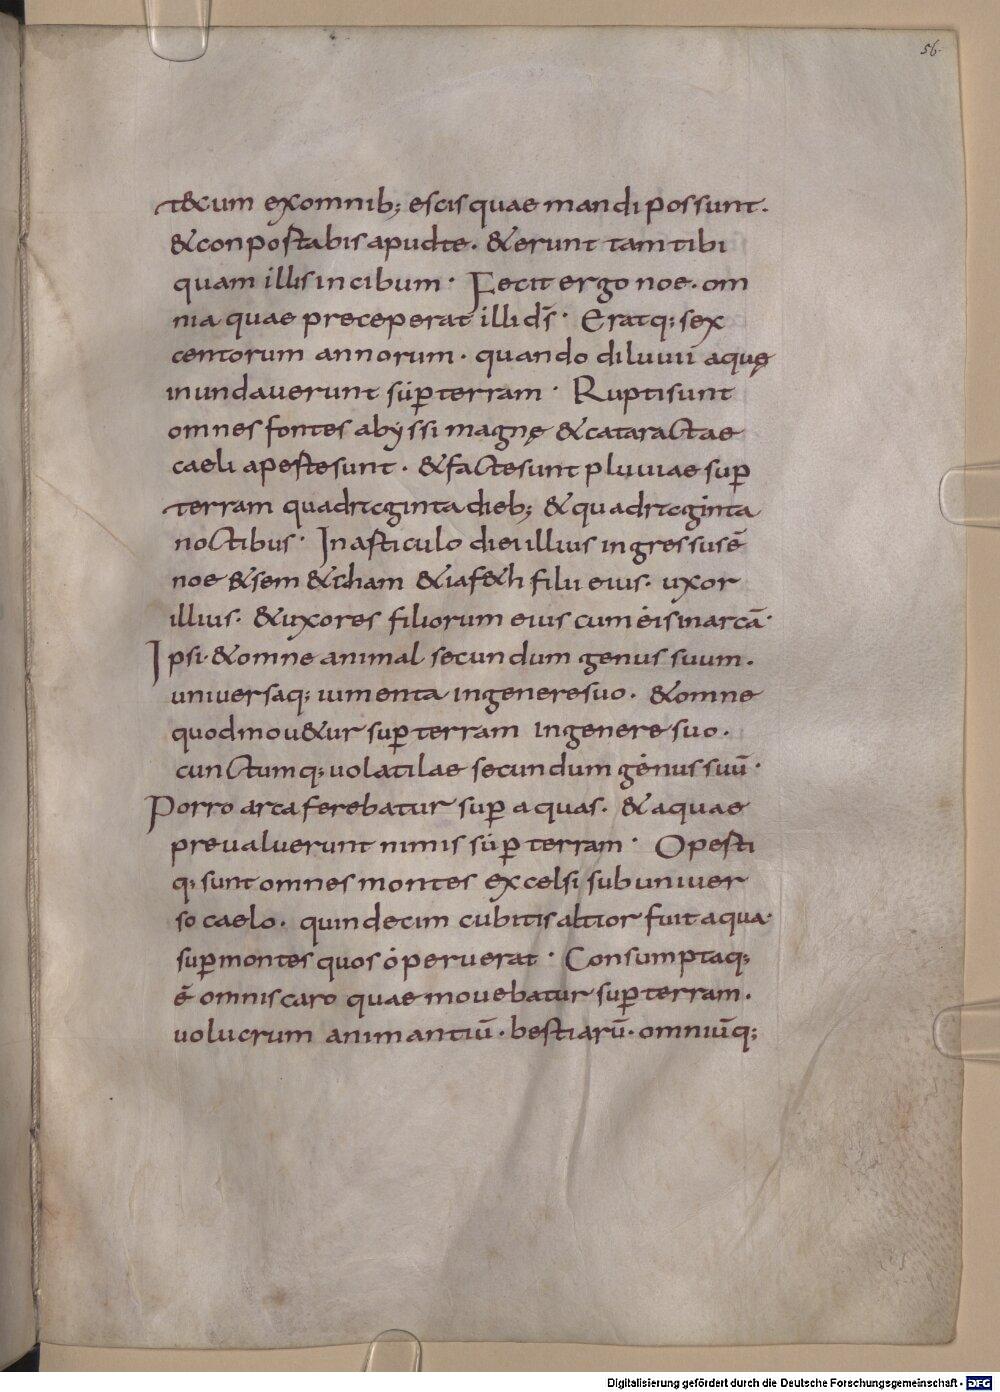 56.
t&cum exomnib; escis quae mandi possunt.
& conpostabis apud te. & erunt tam tibi
quam illis in cibum. Fecit ergo noe. om
nia quae preceperat illi ds̄. Eratq; sex
centorum annorum. quando diluuii aquę
inundauerunt sup̄ terram. Rupti sunt
omnes fontes abyssi magnę & cataractae
caeli apestesunt. & facte sunt pluuiae sup̄
terram quadraginta dieb; & quadraginta
noctibus. In asticulo diei illius ingressus ē
noe & sem & cham & iaf&h filii eius. uxor
illius. & uxores filiorum eius cum eis in arcā.
Ipsi. & omne animal secundum genus suum.
uniuersaq; iumenta in genere suo. & omne
quod mou&ur sup̄ terram in genere suo.
cunctumq; uolatilae secundum genus suū.
Porro arca ferebatur sup̄ aquas. & aquae
preualuerunt nimis sup̄ terram. Opesti
q; sunt omnes montes excelsi sub uniuer
so caelo. quindecim cubitis altior fuit aqua.
sup̄ montes quos operuerat. Consumptaq;
ē omnis caro quae mouebatur sup̄ terram.
uolucrum animantiū. bestiarū. omniūq;
Digitalisierung gefördert durch die Deutsche Forschungsgemeinschaft - DFG